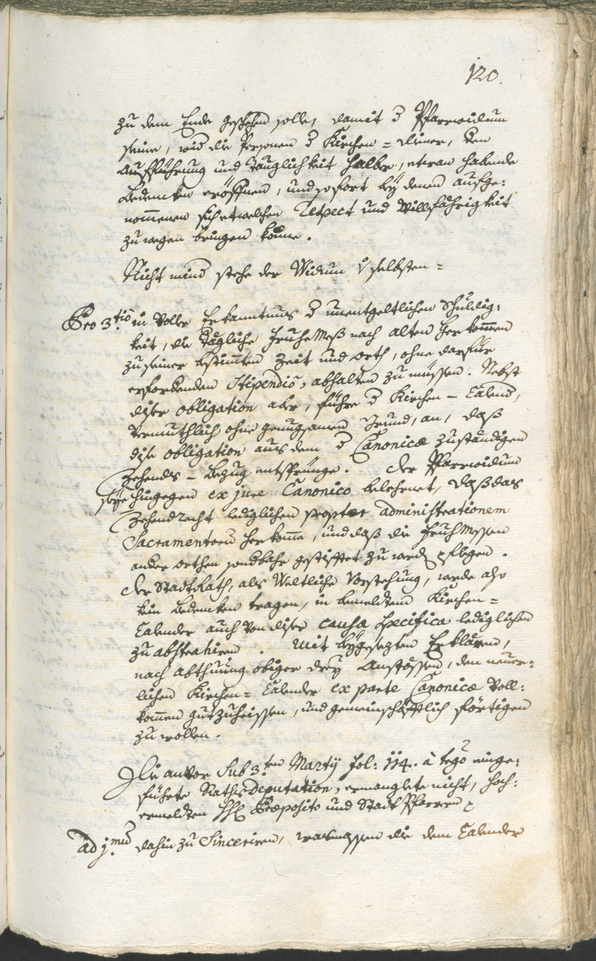 120.
zu dem Ende geschehen solle, damit d Pfarrwidum
seine, wid die Personen d Kirchen-Diener, dem
Aufführung und Tauglichkeit halber, etwan habende
Bedencken eröffnen, und sofort bey denen aufge-
nommenen sich etwelchen Respect und Willfährigkeit
zu wegen bringen könne.
Nicht mind stehe der Widum selbsten
Pro 3.tio in voller Erkanntnus d unentgeltlichen Schuldig-
keit, die tägliche Fruhe Meß nach alten Herkommen
zu seiner bestimmten Zeit und orth, ohne darfür
erfordenden Stipendio, abhalten zu müssen. Nebst
diser obligation aber, führe d Kirchen-Calend,
vermuthlich ohne genugsamen Grund, an, daß
dise obligation aus dem d Canonicæ zuständigen
Zehends-Bezug entspringe. Der Pfarrwidum
seye hingegen ex jure Canonico belehrnet, daß das
Zehendrecht lediglichen propter administrationem
Sacramentorum herkomme, und daß die Fruh Messen
ander orthen sondbahr gestifftet zu werd pflegen.
Der StadtRath, als Weltliche Vorstehung, werde also
kein Bedencken tragen, in bemeldtem Kirchen-
Calender auch von diser causa specifica lediglichen
zu abstrahiren. Mit beygesezten Erklären,
nach abthuung obiger drey Anstössen, den neuer-
lichen Kirchen-Calender ex parte Canonicæ voll-
kommen gutzuheissen, und gemeinschäfftlich fertigen
zu wollen.
Die anvor Sub 3.ten Martij fol: 114. à tergo einge-
führte RathsDeputation, ermanglete nicht, hoch-
ermeldten HH. Præposito und Stadt Pfarren
Ad 1.mum dahin zu Sinceriren, wasmassen die dem Calender